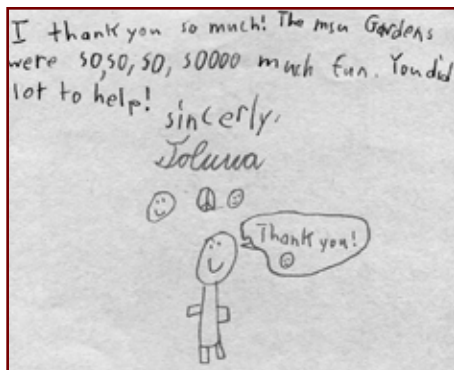 I thank you so much! The msu Gardens
were so,so, so, soooo much fun. You did
lot to help!
sincerly,
Thank you!